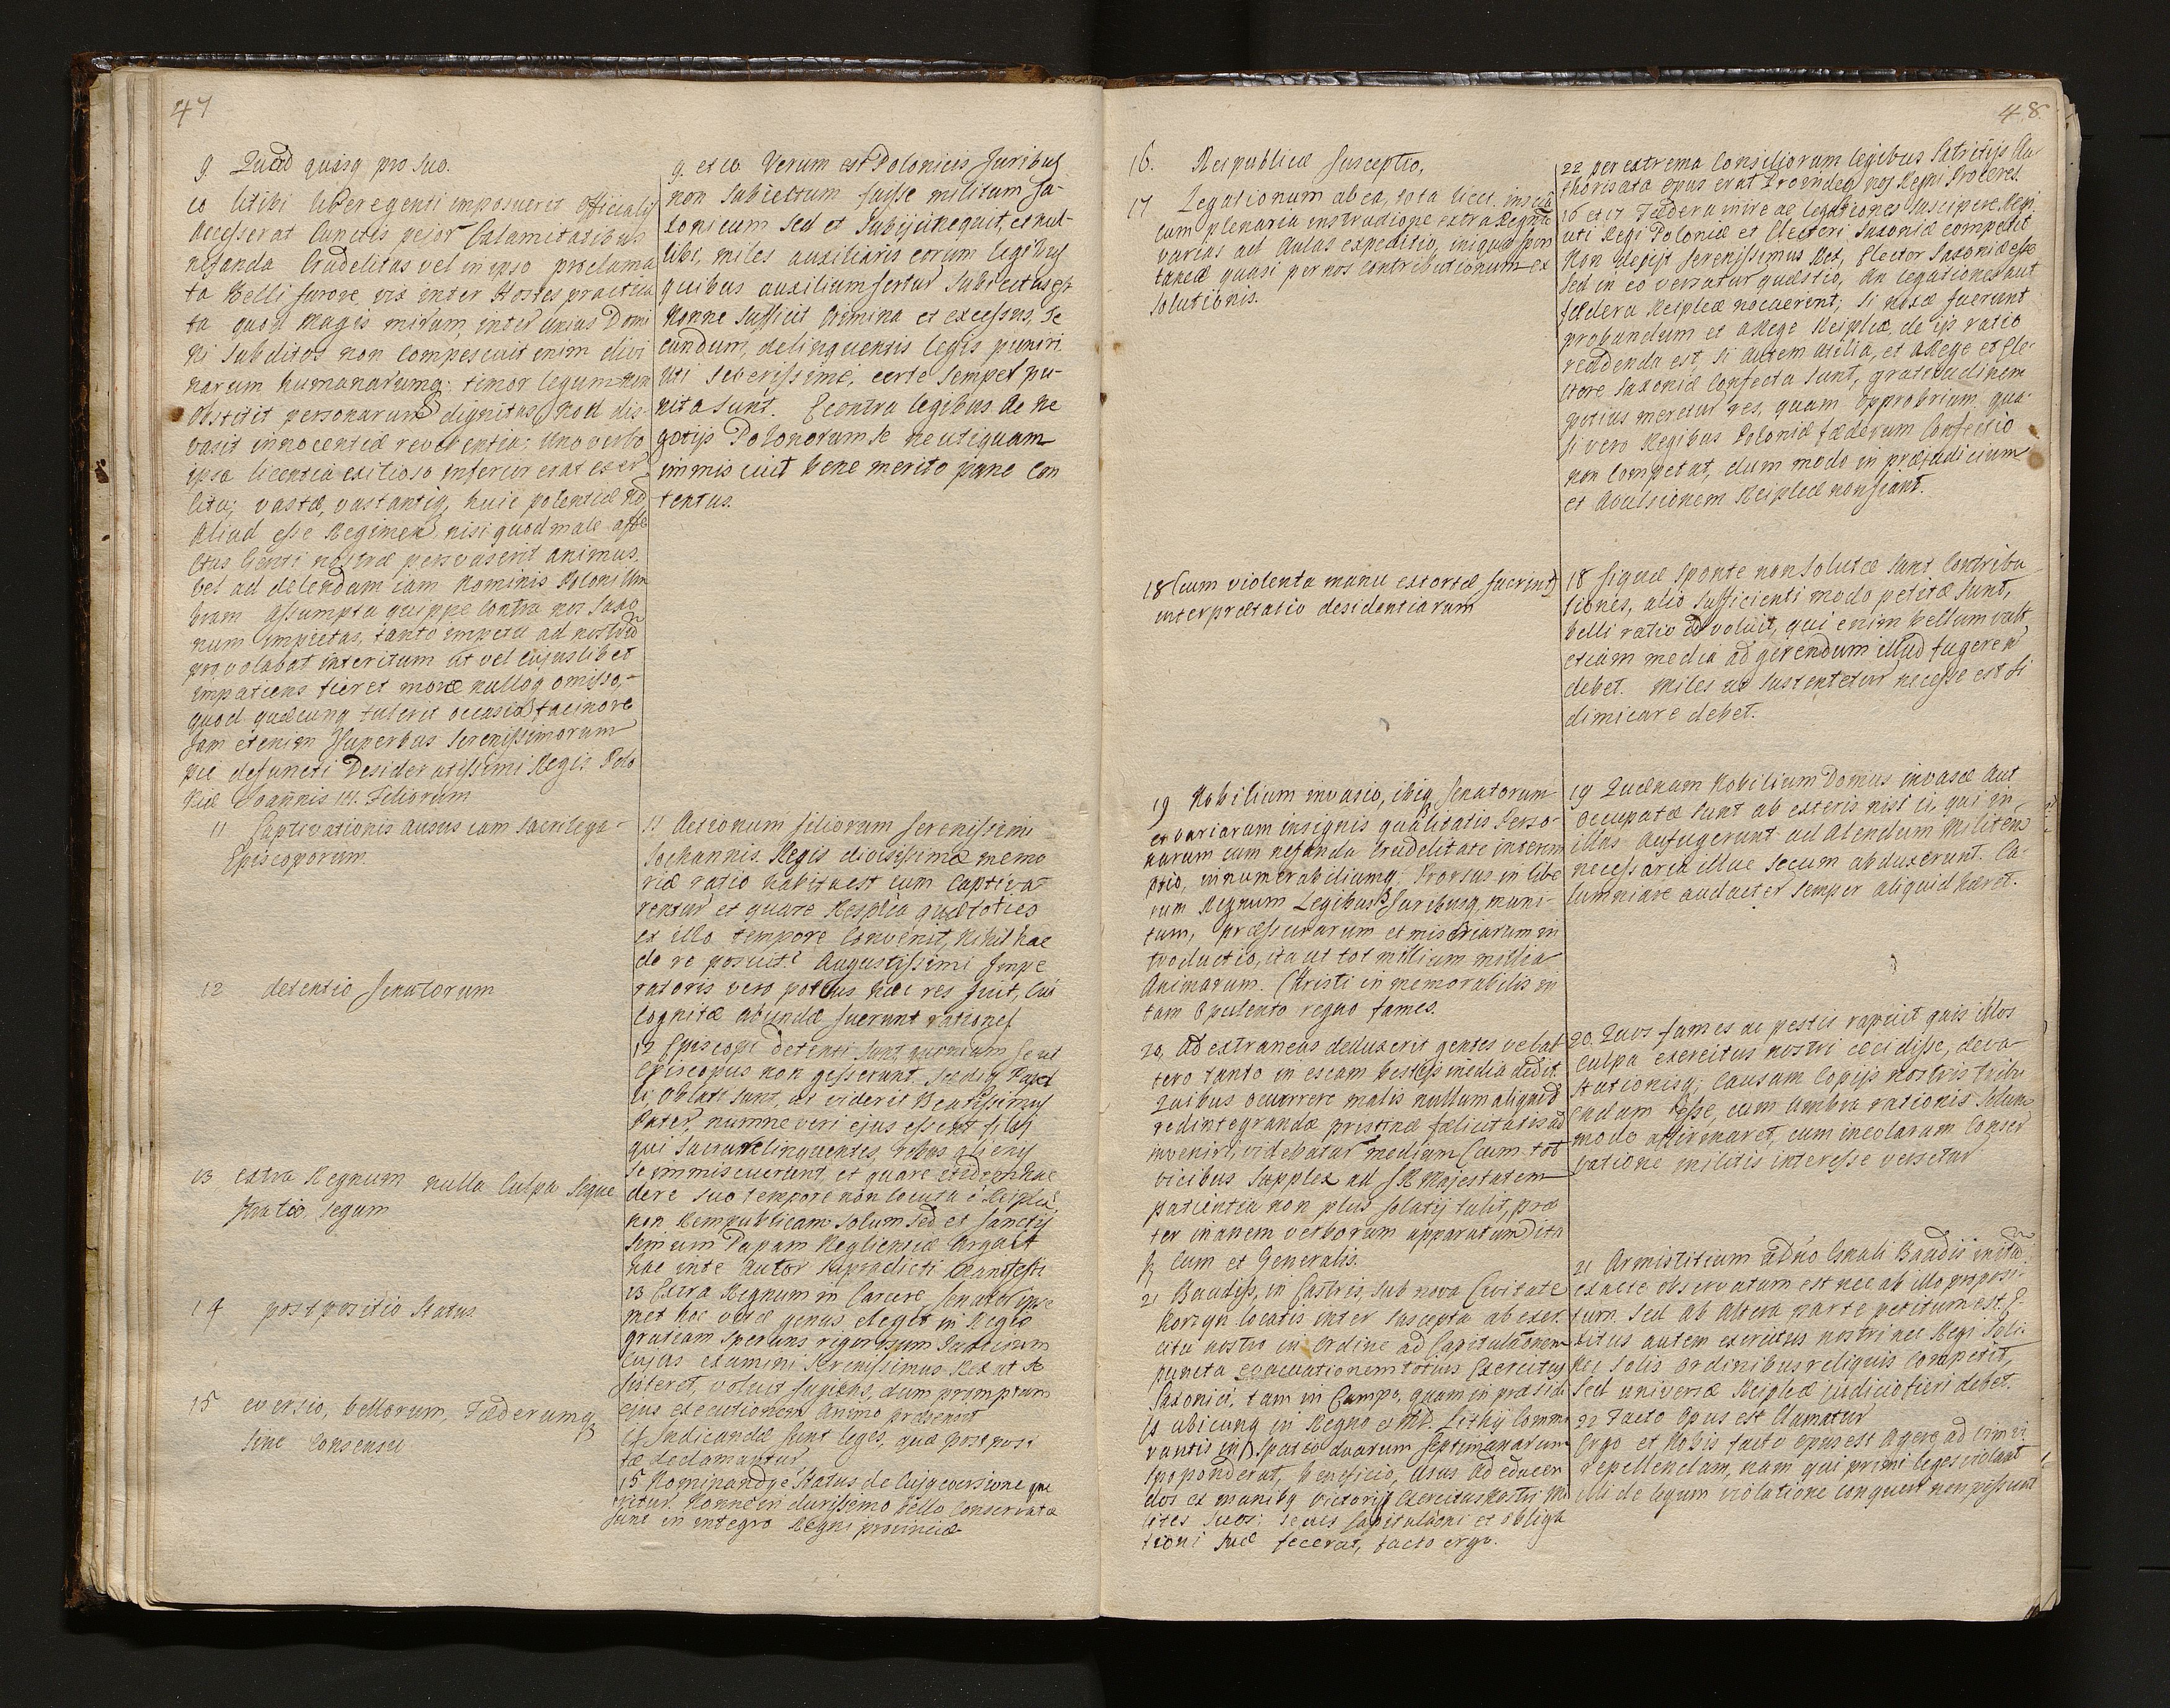 47
9 Quod quisq pro suo.
10 sibi imposuerit officialis
Accesserat cunctis pejor Calamitatibus
nefanda Crudelitas vel in ipso proclama
ta Belli furore vix inter Hostes practica
ta quod magis mirum inter unius Domi
ni Subditos non compescuit enim divi
narum humanarumq; timor legum non
obstitit personarum dignitas, non dis-
vasit innocentiæ reverentia; uno verbo
ipsa licentia exitiosa inferior erat exer
citu; vastæ, vastantiq, huic potentiæ no
Aliud esse Regimen nisi quod male affe
ctus Genti nostræ persvaserit animus.
Vel ad delendam iam Nominis Poloni Um
bram Assumpta quippe contra nos Saxo
num impietas, tanto impetu ad nostrum
provolabat interitum ut vel cujuslibet
impatiens fieret moræ nulloq omisso,
quod quæcunq tulerit occasio facinore
Jam etenim Superbus Serenissimorum
pie defuncti Desideratissimi Regis Polo
niæ Joannis III. Filiorum
11 Captivationis ausus cum sacrilega
Episcoporum
12 detentio Senatorum
13 extra Regnum nulla Culpa Seque
stratio legum
14 postpositio Status.
15 eversio, bellorum, Fæderumq
sine consensu
9. et 10. Verum est Polonicis Juribus
non Subiectum fuisse militum Sa-
xonicum sed et Subijci nequit, et nul-
libi, miles auxiliaris eorum legibus
quibus auxilium fertur Subiectus est
Nonne Sufficit Crimina et excessus, se
cundum, delinquentis legis puniri
uti severissime, certe semper pu-
nita sunt. Econtra legibus ac ne
gotijs Polonorum se neutiquam
immiscuit bene merito pane con
tentus.
11 Actionum filiorum Serenissimi
Johannis Regis divisissimæ memo
riæ ratio habita est cum captiva
rentur et quare Resplca quæ toties
ex illo tempore convenit, nihil hac
de re posuit? Augustissimi Impe
ratoris vero potius hæc res fuit, cui
cognitæ abundæ fuerunt rationes
12 Episcopi detenti sunt, quoniam se ut
Episcopus non gesserunt. Sediq Papa
li, Oblati sunt, ut viderit Beatissimus
Pater, numne veri ejus essent filij
qui sacra relinquentes, rebus alienis
se immiscuerunt, et quare eadem hac
de re suo tempore non locuta è Resplca?
non Rempublicam solum sed et sanctis
simum Papam Negligentiæ Arguit
hac in re Autor supradicti Manifesti
13 Extra Regnum in Carcere Senator ipse
met hoc vitæ genus elegit in Regis
gratiam sperans rigorosum Judicium
cujus examini Serenissimus Rex ut se
sisteret, voluit fugiens, dum promptum
ejus executionem animo prævenit
14 Indicandæ sunt leges, quæ postposi
tæ declamantur
15 Nominandus è Status de cujus eversione que
ritur. Nonne in durissimo bello conservatæ
sunt in integro Regni provinciæ
48.
16. Reipublicæ susceptio,
17 Legationum ab ea, tota licet inscia
cum plenaria instructione extra Regnum
varias ad Aulas expeditio, iniqua spon
taneæ quasi per nos contributionum ex
solutionis.
18 (cum violenta manu extortæ fuerint)
interprætatio desidentiarum
19 Nobilium invasio, ibiq senatorum
et variarum insignis qualitatis Perso-
narum cum nefanda Crudelitate interem
ptio, innumerabiliumq Prorsus in libe
rum Regnum Legibus Juribusq, muni-
tum, præssurarum et miseriarum in
troductio, ita ut tot millium millia
Animarum. Christi in memorabilis in
tam Opulento regno fames.
20, Ad extraneas deduxerit gentes vel al
tero tanto in escam bestijs inedia dedit.
Quibus ocurrere malis nullum aliquod
redintegrandæ pristinæ fælicitatis ad
inveniri, videbatur medium cum tot
vicibus supplex ad SR Majestatem
patientia non plus solatij tulit, præ
ter inanem verborum apparatum ita
cum et Generalis.
21 Baudiss, in Castris, sub nova Civitate
Korzyn locatis inter suscepta ab exer
citu nostro in Ordine ad Capitulationem
puncta evacuationem totius Exercitus
Saxonici, tam in Campo, quam in præsidi
is ubicunq in Regno et M.D. Lithij Comm
rantis in spatio duarum septimanarum
spoponderat, beneficio, usus ad educen
dos ex manibus victoris Exercitus Nostri Mi
lites suos; Capitulãoni et obliga
tioni suæ fecerat, facto ergo.
22 per extrema Consiliorum legibus Patritijs Au
thorisata opus erat Proindeq nos Regni Proceres.
16 et 17 Fædera inire ac legationes suscipere Regi
uti Regi Poloniæ et Electori Saxoniæ competit
Non desijt Serenissimus Rex, Elector Saxoniæ esse
sed in eo versatur quæstio, an legationes aut
fædera Reiplcæ nocuerint; si noxæ fuerunt
probandum et a Rege Reiplcæ, de ijs ratio
reddenda est, si autem utilia, et a Rege et Ele-
ctore Saxoniæ Confecta sunt, gratitudinem
potius meretur res, quam opprobrium qua-
si vero Regibus Poloniæ fæderum Confectio
non competat, dum modo in præjudicium
et Avulsionem Reiplcæ non fiant.
18 Siquæ sponte non solutæ sunt Contribu
tiones, alio sufficienti modo petitæ sunt,
belli ratio id voluit, qui enim bellum vult
etiam media ad gerendum illud sugerere
debet. Miles ut sustentetur necesse est si
dimicare debet.
19 Quænam Nobilium Domus invasæ aut
Occupatæ sunt ab exteris nisi ii, qui in
illas aufugerunt ad alendum Militem
necessaria illuc secum abduxerunt. Ca-
lumniare audacter semper aliquid hæret.
20. Quos fames ac pestis rapuit quis illos
culpa exercitus nostri cecidisse, deva-
stationisq; causam Copijs nostris tribu
endam esse, cum umbra rationis solum
modo affirmaret, cum incolarum Conser
vatione militis interesse versetur
21 Armistitium a Dno Gnali Baudis
exacte observatum est nec ab illo proposi-
tum sed ab altera parte petitum est. E-
xitus autem exercitus nostri nec Regi soli
nec solis ordinibus reliquis competit,
sed universæ Reiplcæ judicio fieri debet.
22 Facto Opus est Clamatur
Ergo et Nobis facto opus est Agere, ad vim vi
repellendam, nam qui primi leges violant
illi de legum violatione conqueri non possunt